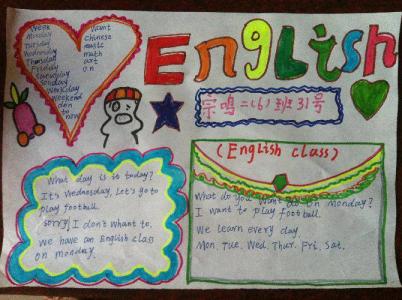 Week
Monday
Tuesday
Wednesday
Thursdat
Friday
Saturday
Senday
Workday
Weekend
den
to
now
Want
Chinese
music
math
art
on
English
宗鸣二(6)班31号
What day is it today?
It's Wednesday, Let's go to
play football.
sorry, I don't whant to.
We have an English class
on monday.
(English class)
What do you want do on Monday?
I want to play football.
We learn every day
Mon. Tue. Wed. Thur. Fri. Sat.